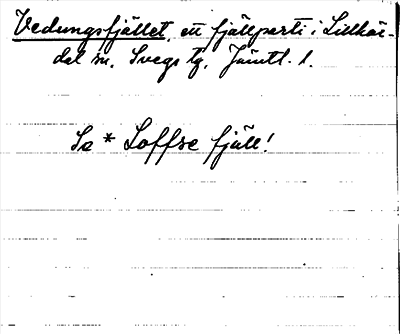 Vedungsfjället, ett fjällparti i Lillhär-
dal sn. Svegs tg. Jämtl. l.
Se * Loffse fjäll!